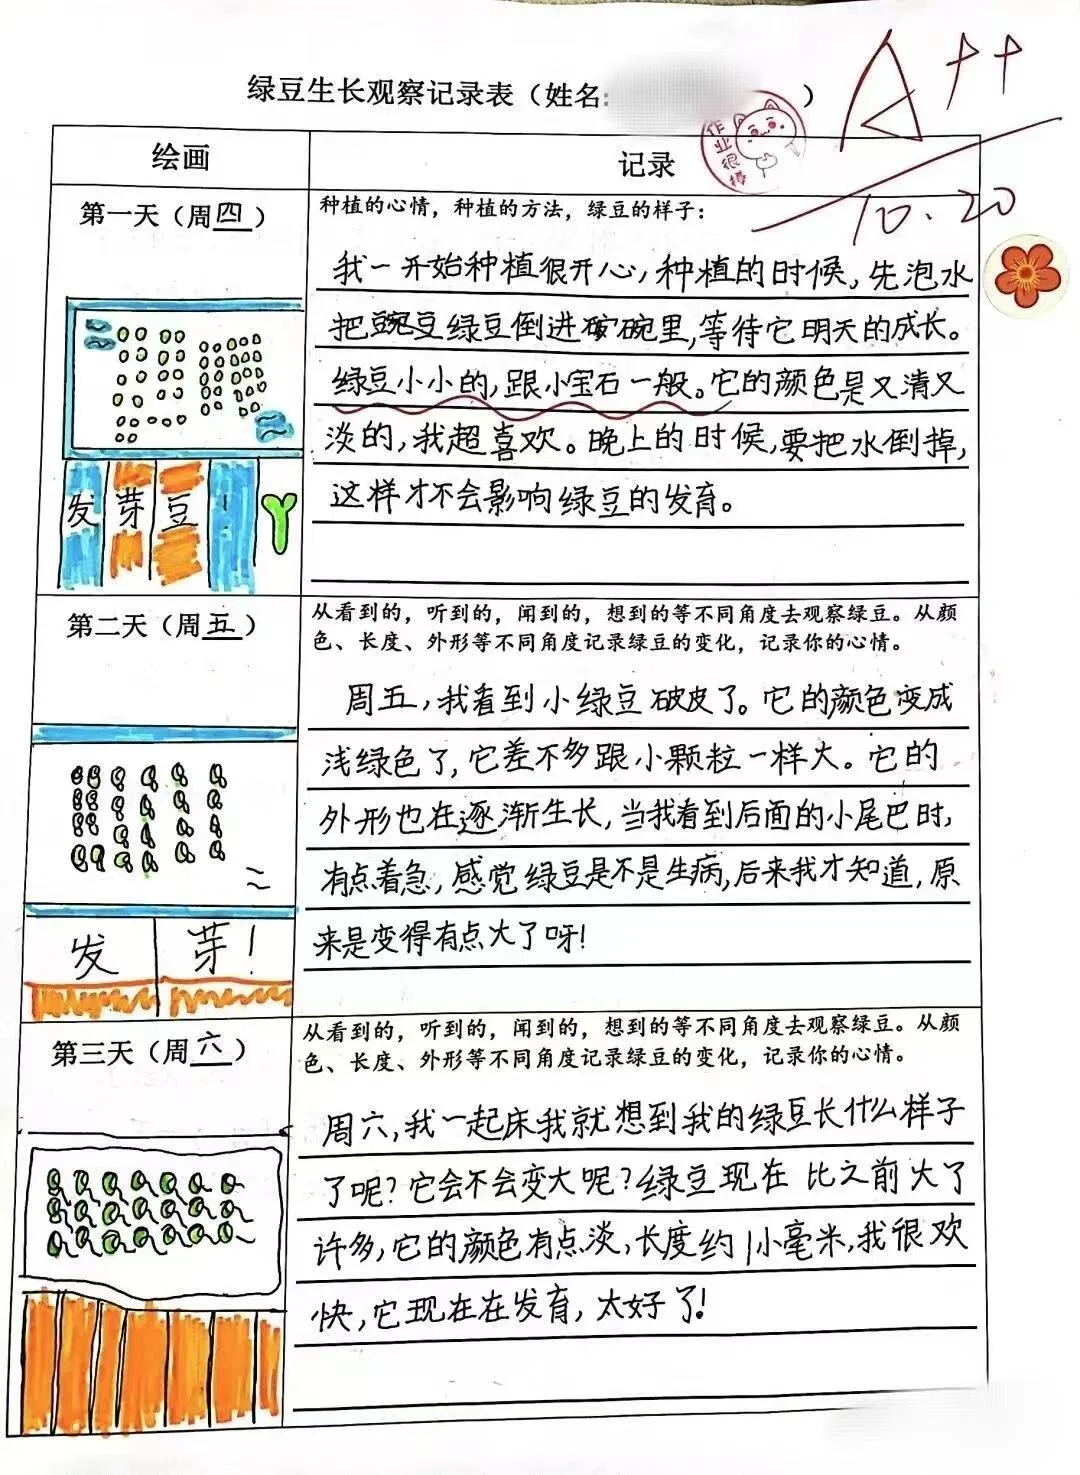 绿豆生长观察记录表（姓名: ）
A++
10.20
作业很棒
绘画
记录
第一天（周四）
种植的心情，种植的方法，绿豆的样子：
我一开始种植很开心，种植的时候，先泡水
把豌豆绿豆倒进碗里，等待它明天的成长。
绿豆小小的，跟小宝石一般。它的颜色是又清又
淡的，我超喜欢。晚上的时候，要把水倒掉，
这样才不会影响绿豆的发育。
发芽豆！
第二天（周五）
从看到的，听到的，闻到的，想到的等不同角度去观察绿豆。从颜
色、长度、外形等不同角度记录绿豆的变化，记录你的心情。
周五，我看到小绿豆破皮了。它的颜色变成
浅绿色了，它差不多跟小颗粒一样大。它的
外形也在逐渐生长，当我看到后面的小尾巴时，
有点着急，感觉绿豆是不是生病，后来我才知道，原
来是变得有点大了呀！
发芽！
第三天（周六）
从看到的，听到的，闻到的，想到的等不同角度去观察绿豆。从颜
色、长度、外形等不同角度记录绿豆的变化，记录你的心情。
周六，我一起床我就想到我的绿豆长什么样子
了呢？它会不会变大呢？绿豆现在比之前大了
许多，它的颜色有点淡，长度约1小毫米，我很欢
快，它现在在发育，太好了！